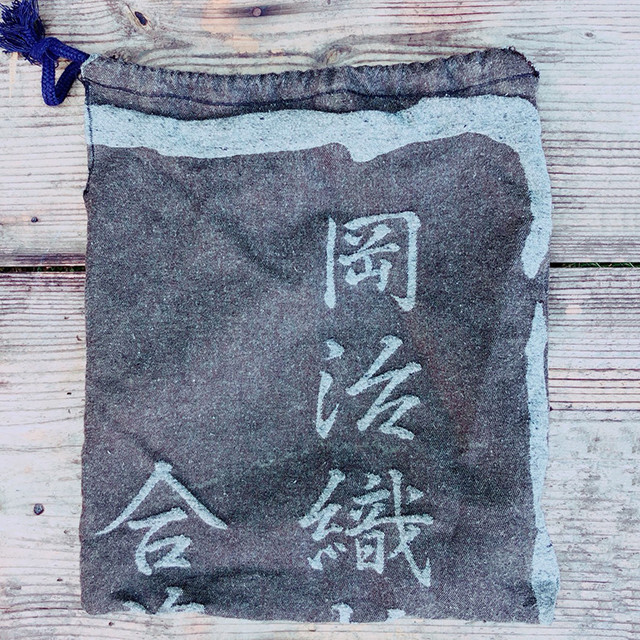 岡治織
合